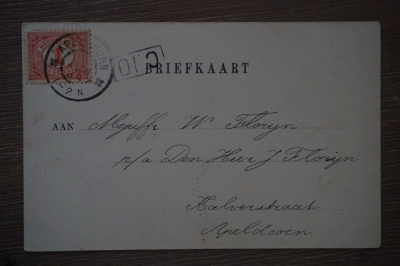 BRIEFKAART
AAN Mejuffr W Floryn
p/a Den Heer J Floryn
Kalverstraat
Apeldoorn